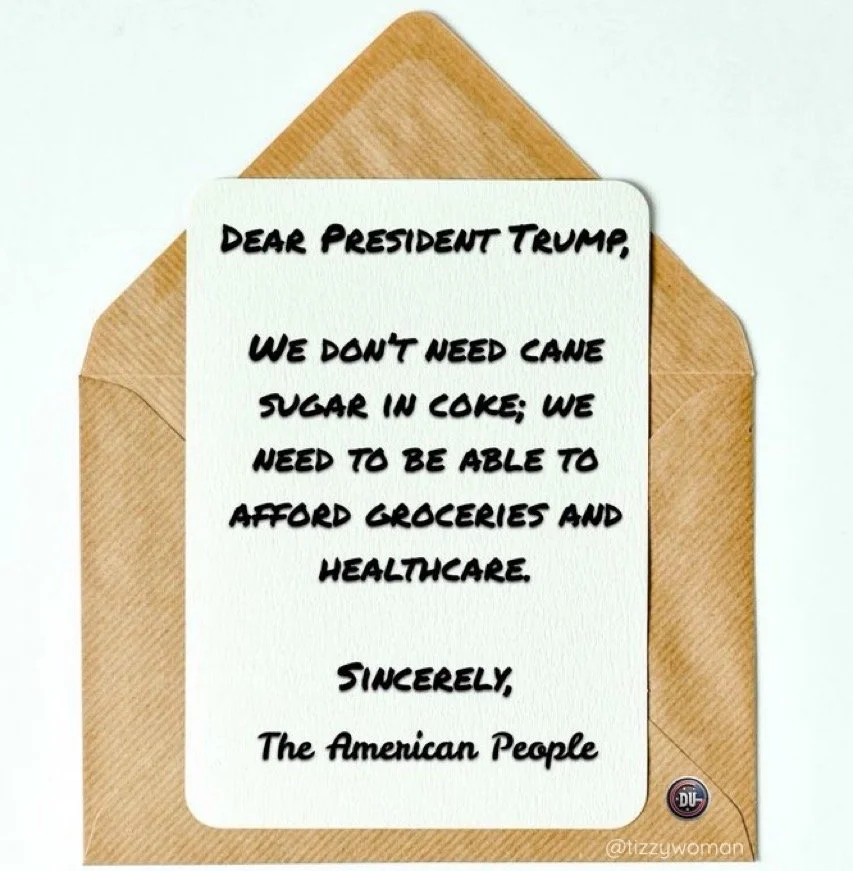 Dear President Trump,
We don't need cane
sugar in coke; we
need to be able to
afford groceries and
healthcare.
Sincerely,
The American People
DU
@tizzywoman